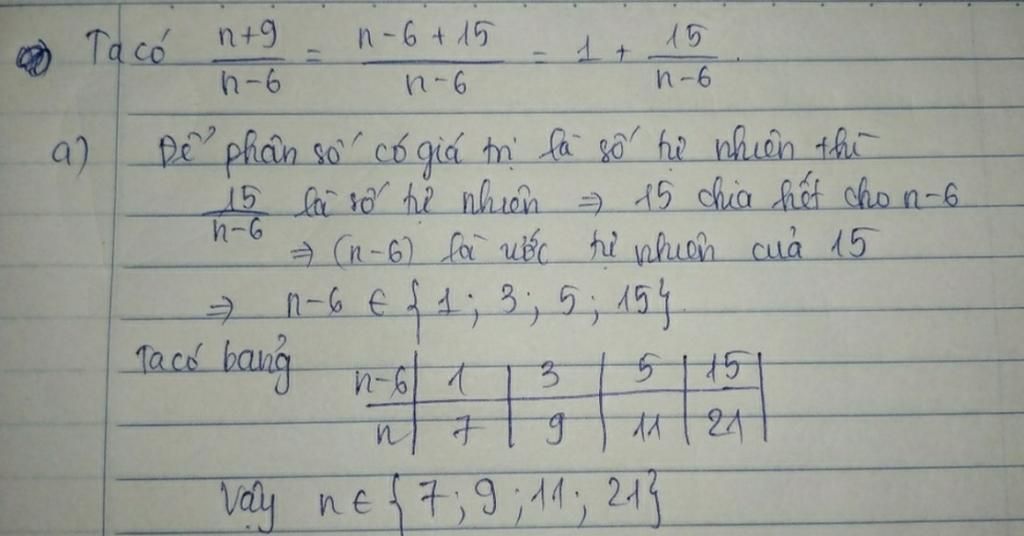 Ta có (n+9)/(n-6) = (n-6+15)/(n-6) = 1 + 15/(n-6).
a) Để phân số có giá trị là số tự nhiên thì
15/(n-6) là số tự nhiên ⇒ 15 chia hết cho n-6
⇒ (n-6) là ước tự nhiên của 15
⇒ n-6 ∈ {1; 3; 5; 15}
Ta có bảng
n-6 | 1 | 3 | 5 | 15
n | 7 | 9 | 11 | 21
Vậy n ∈ {7; 9; 11; 21}